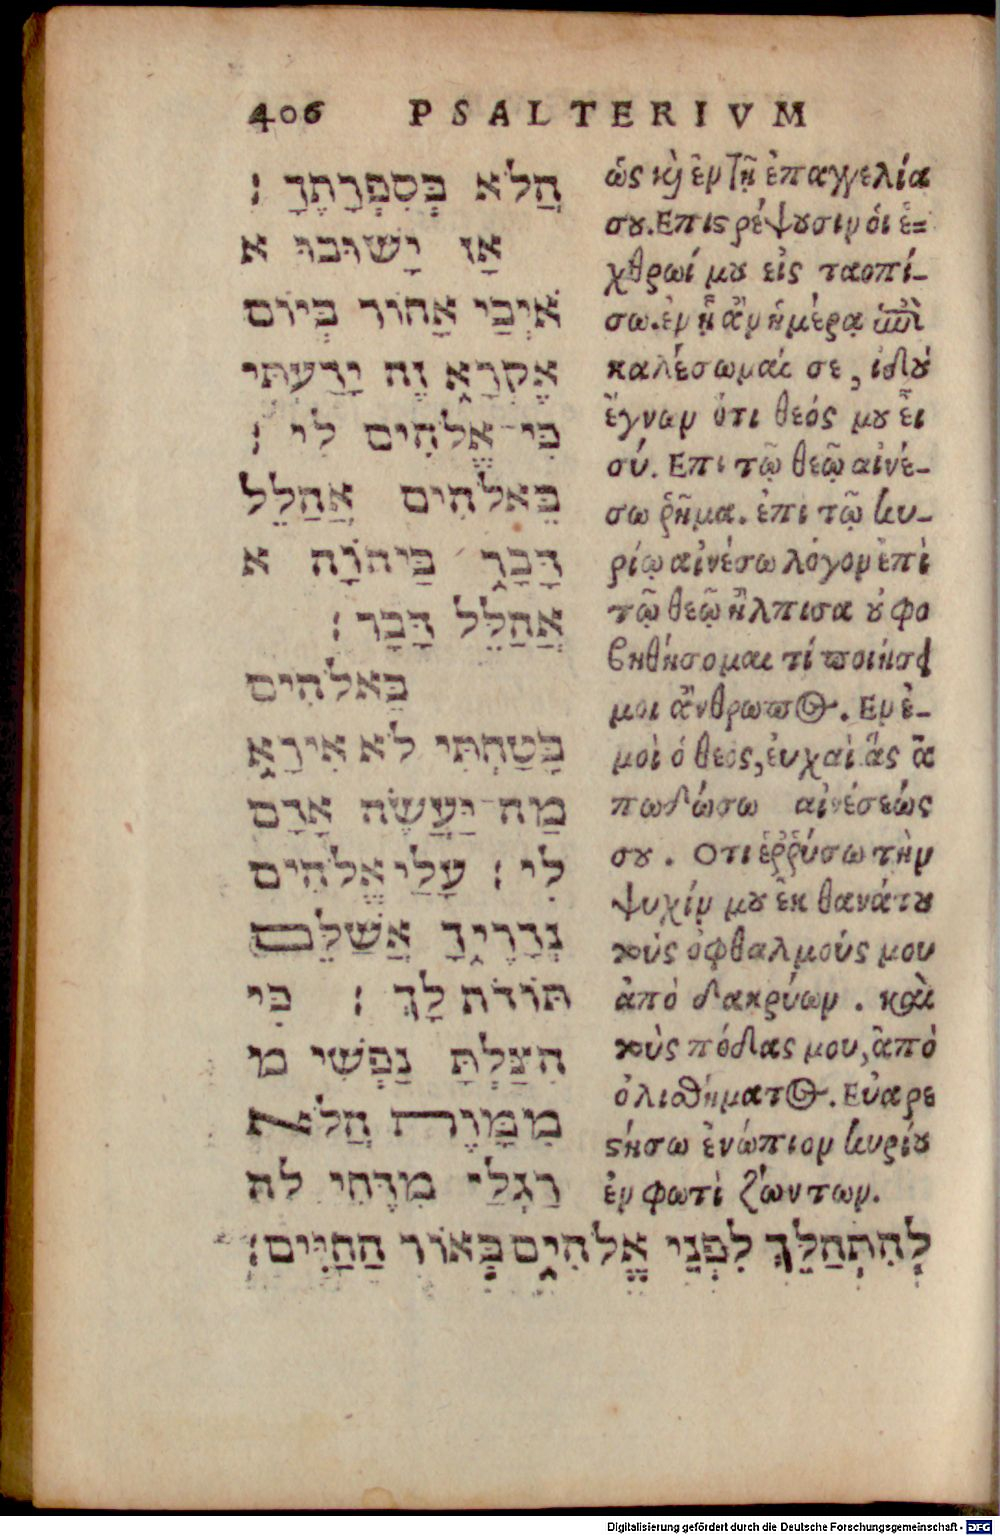 406 PSALTERIVM
הֲלֹא בְּסִפְרָתֶךָ :
אָז יָשׁוּבוּ א
אֹיְבַי אָחוֹר בְּיוֹם
אֶקְרָא זֶה יָדַעְתִּי
כִּי־אֱלֹהִים לִי :
בֵּאלֹהִים אֲהַלֵּל
דָּבָר בַּיהוָֹה א
אֲהַלֵּל דָּבָר :
בֵּאלֹהִים
בָּטַחְתִּי לֹא אִירָא
מַה־יַּעֲשֶׂה אָדָם
לִי : עָלַי אֱלֹהִים
נְדָרֶיךָ אֲשַׁלֵּם
תּוֹדֹת לָךְ : כִּי
הִצַּלְתָּ נַפְשִׁי מ
מִמָּוֶת הֲלֹא
רַגְלַי מִדֶּחִי לה
לְהִתְהַלֵּךְ לִפְנֵי אֱלֹהִים בְּאוֹר הַחַיִּים :
ὡς κỳ ἐν τῇ ἐπαγγελία
σȣ. Επιϛρέψȣσιν ὁι ἐ=
χθρωί μȣ εἰς ταοπί-
σω. ἐν ᾗ ἂν ἡμέρᾳ ἐπι
καλέσωμαί σε, ἰδȣ́
ἔγνων ὅτι θεός μȣ εἶ
σύ. Επι τῷ θεῷ αἰνέ-
σω ῥῆμα. ἐπι τῷ κυ-
ρίῳ αἰνέσω λόγον ἐπὶ
τῷ θεῷ ἤλπισα ȣ̓ φο
βηθήσομαι τί ποιήσει
μοι ἄνθρωπος. Εν ἐ-
μοὶ ὁ θεός, ἐυχαὶ ἃς ἀ
πωδώσω αἰνέσεώς
σȣ. Οτι ἐῤῥύσω τὴν
ψυχίν μȣ ἐκ θανάτȣ
τοὺς οφθαλμούς μου
ἀπὸ δακρύων. καὶ
τοὺς πόδας μου, ἀπὸ
ὀλισθήματος. Εὐαρε
ϛήσω ἐνώπιον κυρίȣ
ἐν φωτὶ ζώντων.
Digitalisierung gefördert durch die Deutsche Forschungsgemeinschaft - DFG